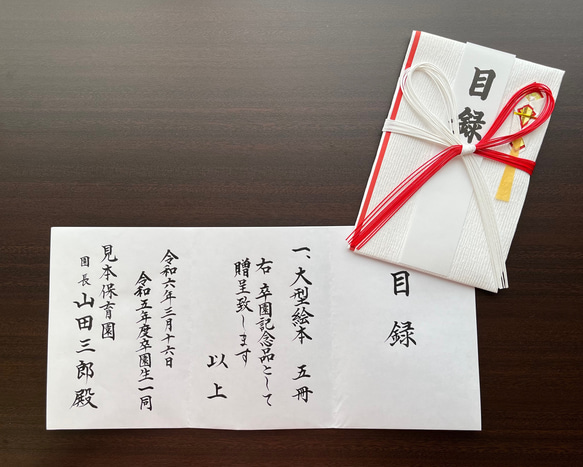 目録
目録
一、大型絵本 五冊
右 卒園記念品として
贈呈致します
以上
令和六年三月十六日
令和五年度卒園生一同
見本保育園
園長 山田三郎殿